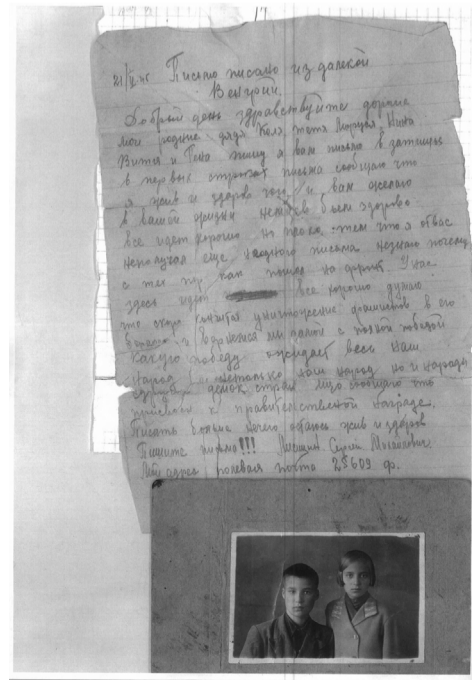 21/V 45 Письмо писано из далекой
Венгрии.
Добрый день здравствуйте дорогие
мои родные дядя Коля, тетя Маруся, Нина
Витя и Гена пишу я вам письмо в
в первых строках письма сообщаю что
я жив и здоров и вам желаю
в вашей жизни быть здоров
все идет хорошо но плохо тем что я от вас
неполучал еще ниодного письма незнаю почему
с тех пор как пошел на фронт. У нас
здесь идет все хорошо думаю
что скоро кончится уничтожение фашистов в его
и вернемся мы домой с полной победой
какую победу ожидает весь наш
народ и нетолько наш народ но и народы
стран мира. сообщаю что
к правительственной награде.
Писать больше нечего остаюсь жив и здоров
Пишите письма!!! Сергей
Мой адрес: полевая почта 25609 ф.